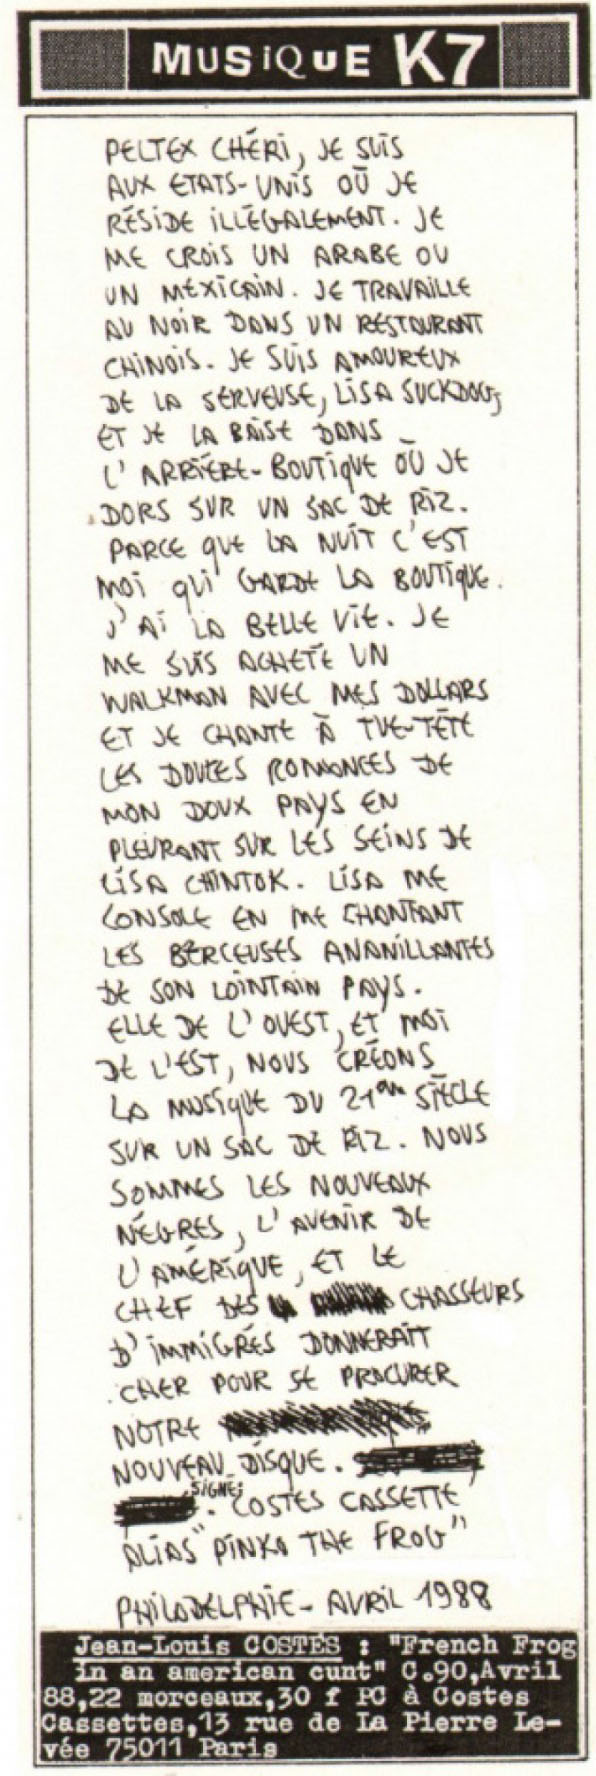 MUSiQUE K7
PELTEX CHÉRi, JE SUiS
AUX ETATS-UNiS OÙ JE
RÉSiDE iLLÉGALEMENT. JE
ME CROiS UN ARABE OU
UN MEXiCAiN. JE TRAVAiLLE
AU NOiR DANS UN RESTAURANT
CHiNOiS. JE SUiS AMOUREUX
DE LA SERVEUSE, LiSA SUCKDOG,
ET JE LA BAiSE DANS
L'ARRiÈRE-BOUTiQUE OÙ JE
DORS SUR UN SAC DE RiZ.
PARCE QUE LA NUiT C'EST
MOi QUi GARDE LA BOUTiQUE.
J'Ai LA BELLE ViE. JE
ME SUiS ACHETÉ UN
WALKMAN AVEC MES DOLLARS
ET JE CHANTE À TUE-TÊTE
LES DOUCES ROMANCES DE
MON DOUX PAYS EN
PLEURANT SUR LES SEiNS DE
LiSA CHiNTOK. LiSA ME
CONSOLE EN ME CHANTANT
LES BERCEUSES ANANiLLANTES
DE SON LOiNTAiN PAYS.
ELLE DE L'OUEST, ET MOi
DE L'EST, NOUS CRÉONS
LA MUSiQUE DU 21ème SiÈCLE
SUR UN SAC DE RiZ. NOUS
SOMMES LES NOUVEAUX
NÈGRES, L'AVENiR DE
L'AMÉRiQUE, ET LE
CHEF DES CHASSEURS
D'iMMiGRÉS DONNERAiT
CHER POUR SE PROCURER
NOTRE
NOUVEAU DiSQUE.
SiGNÉ: COSTES CASSETTE
ALiAS "PiNKO THE FROG"
PHiLADELPHiE - AVRiL 1988
Jean-Louis COSTES : "French Frog
in an american cunt" C.90,Avril
88,22 morceaux,30 f PC à Costes
Cassettes,13 rue de La Pierre Le-
vée 75011 Paris